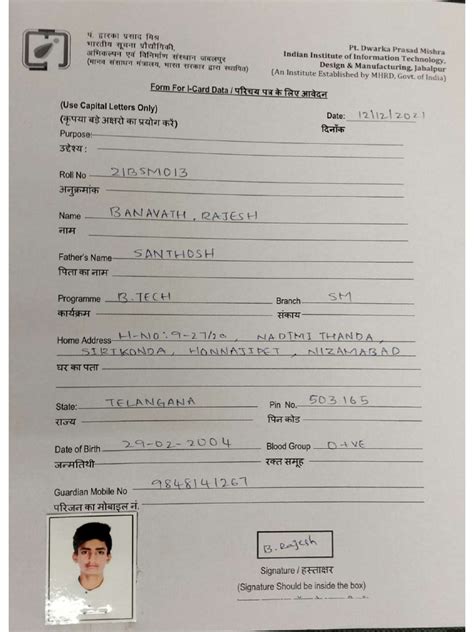 पं. द्वारका प्रसाद मिश्र
भारतीय सूचना प्रौद्योगिकी,
अभिकल्पन एवं विनिर्माण संस्थान जबलपुर
(मानव संसाधन मंत्रालय, भारत सरकार द्वारा स्थापित)
Pt. Dwarka Prasad Mishra
Indian Institute of Information Technology,
Design & Manufacturing, Jabalpur
(An Institute Established by MHRD, Govt. of India)
Form For I-Card Data / परिचय पत्र के लिए आवेदन
(Use Capital Letters Only)
(कृपया बड़े अक्षरो का प्रयोग करें)
Date: 12/12/2021
दिनाँक
Purpose:
उद्देश्य :
Roll No 21BSM013
अनुक्रमांक
Name BANAVATH, RAJESH
नाम
Father's Name SANTHOSH
पिता का नाम
Programme B.TECH Branch SM
कार्यक्रम संकाय
Home Address H-NO: 9-27/20, NADIMI THANDA,
SIRIKONDA, HONNAJIPET, NIZAMABAD
घर का पता
State: TELANGANA Pin No. 503165
राज्य पिन कोड
Date of Birth 29-02-2004 Blood Group O+VE
जन्मतिथी रक्त समूह
Guardian Mobile No 9848141267
परिजन का मोबाइल नं.
B.Rajesh
Signature / हस्ताक्षर
(Signature Should be inside the box)